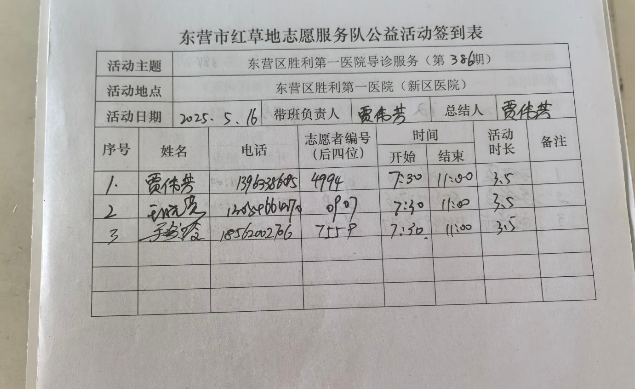 东营市红草地志愿服务队公益活动签到表
活动主题 东营区胜利第一医院导诊服务(第386期)
活动地点 东营区胜利第一医院(新区医院)
活动日期 2025.5.16 带班负责人 贾伟芳 总结人 贾伟芳
序号 姓名 电话 志愿者编号(后四位) 时间 开始 结束 活动时长 备注
1. 贾伟芳 4994 7:30 11:00 3.5
2 0907 7:30 11:00 3.5
3 18562002706 7:30 11:00 3.5